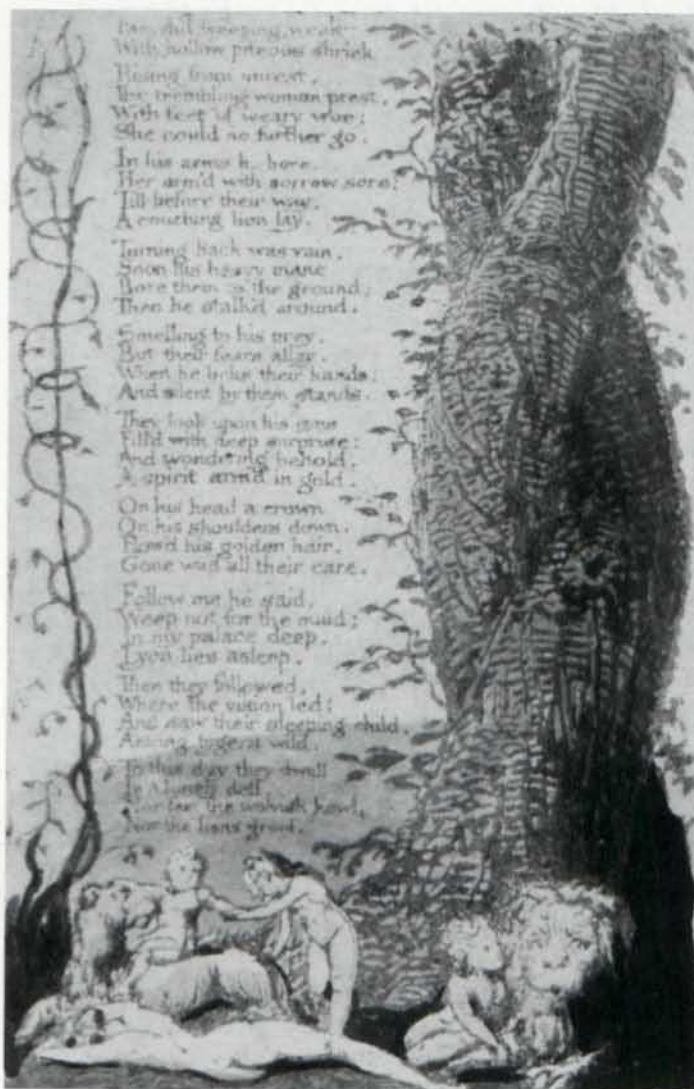 weeping, weak
With hollow piteous shriek
Rising from unrest,
The trembling woman prest,
With feet of weary woe:
She could no further go.
In his arms he bore,
Her arm'd with sorrow sore:
Till before their way,
A couching lion lay.
Turning back was vain,
Soon his heavy mane
Bore them to the ground;
Then he stalk'd around.
Smelling to his prey,
But their fears allay,
When he licks their hands:
And silent by them stands.
They look upon his eyes
Fill'd with deep surprise:
And wondering behold,
A spirit arm'd in gold.
On his head a crown
On his shoulders down,
Flow'd his golden hair.
Gone was all their care.
Follow me he said,
Weep not for the maid;
In my palace deep,
Lyca lies asleep.
Then they followed,
Where the vision led:
And saw their sleeping child,
Among tygers wild.
To this day they dwell
In a lonely dell
Nor fear the wolvish howl,
Nor the lions growl.